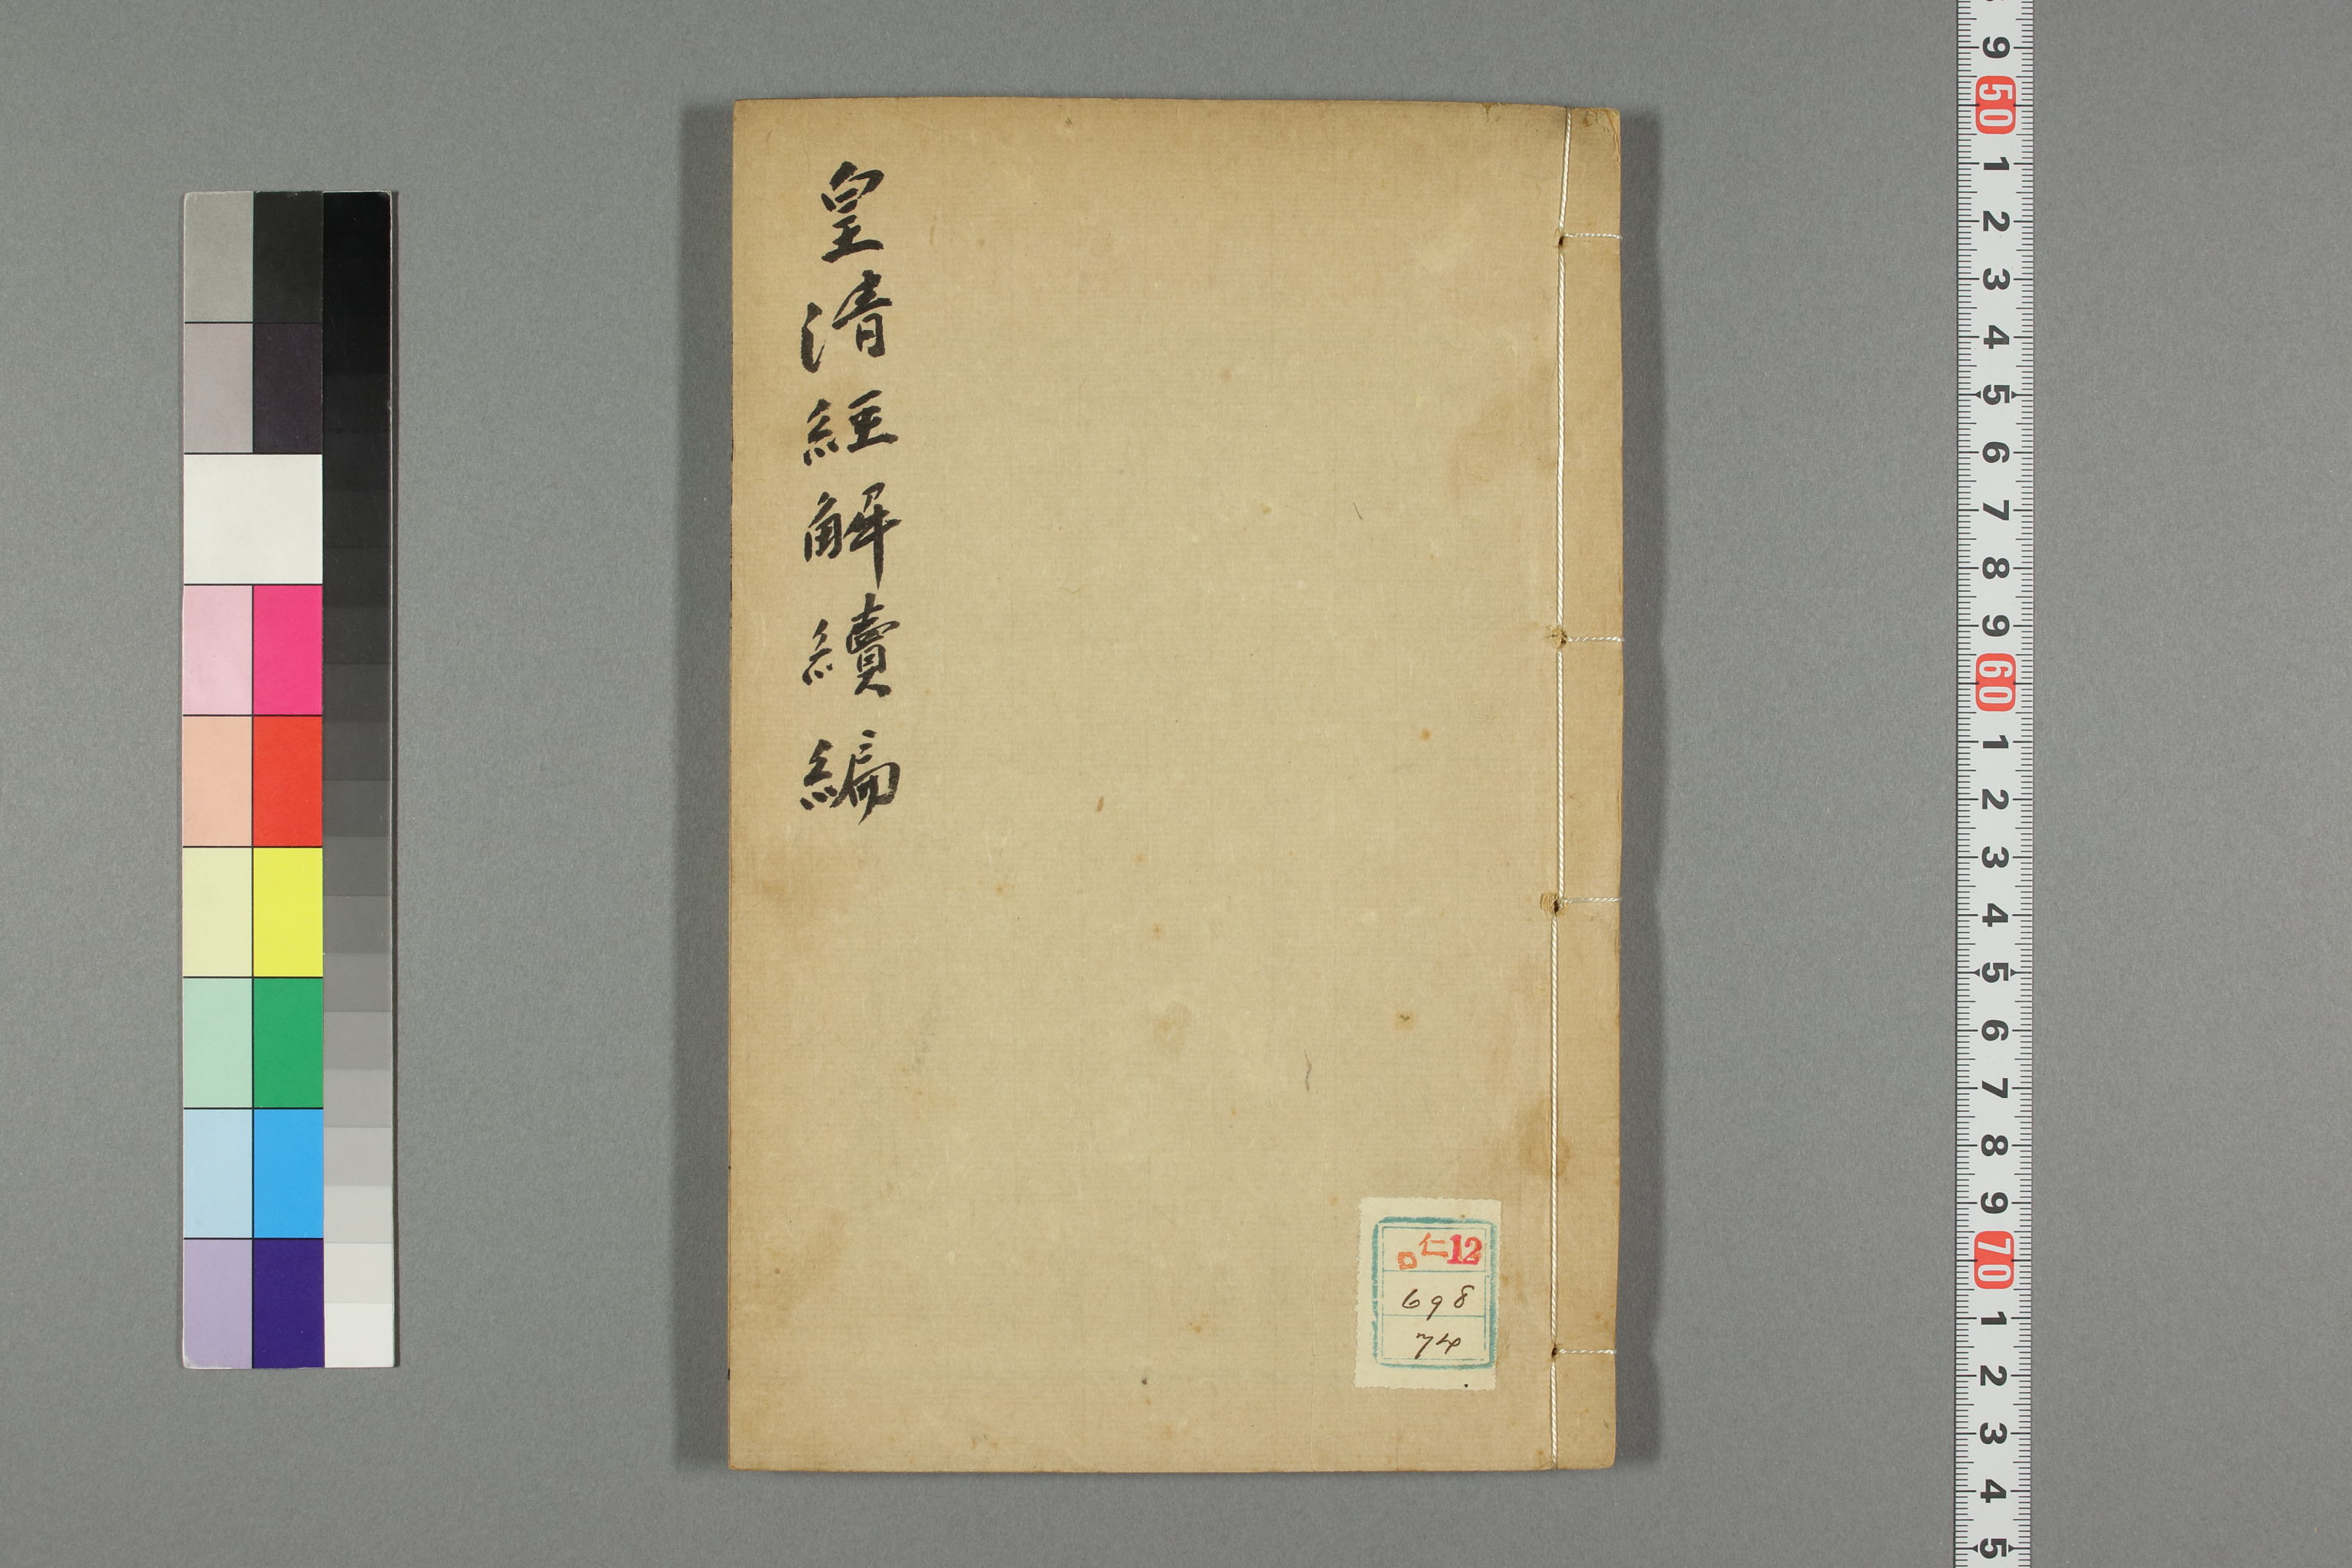 皇清經解續編
ロ仁12
698
74
9
50
1
2
3
4
5
6
7
8
9
60
1
2
3
4
5
6
7
8
9
70
1
2
3
4
5